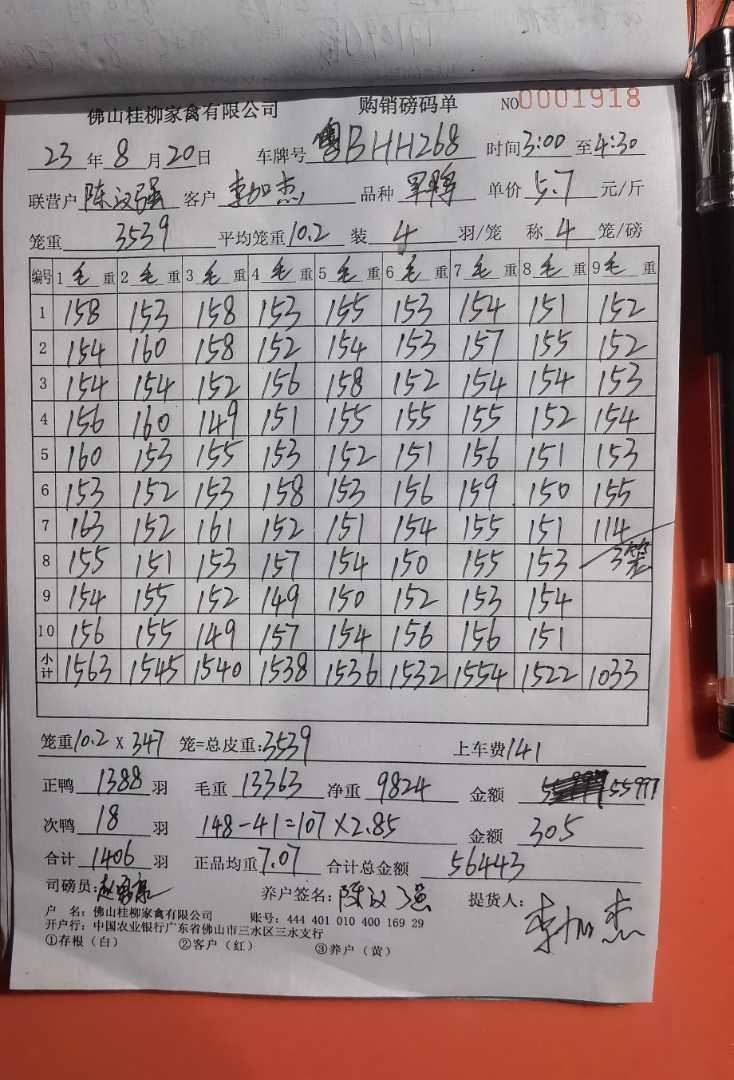 佛山桂柳家禽有限公司 购销磅码单 NO0001918
23年8月20日 车牌号 粤BHH268 时间3:00至4:30
联营户 陈汉强 客户 李加杰 品种 单价 5.7 元/斤
笼重 3539 平均笼重10.2 装 4 羽/笼 称 4 笼/磅
编号 1 毛 重 2 毛 重 3 毛 重 4 毛 重 5 毛 重 6 毛 重 7 毛 重 8 毛 重 9 毛 重
1 158 153 158 153 155 153 154 151 152
2 154 160 158 152 154 153 157 155 152
3 154 154 152 156 158 152 154 154 153
4 156 160 149 151 155 155 155 152 154
5 160 153 155 153 152 151 156 151 153
6 153 152 153 158 153 156 159 150 155
7 163 152 161 152 151 154 155 151 114
8 155 151 153 157 154 150 155 153 3笼
9 154 155 152 149 150 152 153 154
10 156 155 149 157 154 156 156 151
小计 1563 1545 1540 1538 1536 1532 1554 1522 1033
笼重10.2 X 347 笼=总皮重:3539 上车费141
正鸭 1388 羽 毛重 13363 净重 9824 金额 55997
次鸭 18 羽 148-41=107×2.85 金额 305
合计 1406 羽 正品均重7.07 合计总金额 56443
司磅员: 养户签名: 陈汉强 提货人: 李加杰
户 名: 佛山桂柳家禽有限公司 账号: 444 401 010 400 169 29
开户行: 中国农业银行广东省佛山市三水区三水支行
①存根（白） ②客户（红） ③养户（黄）